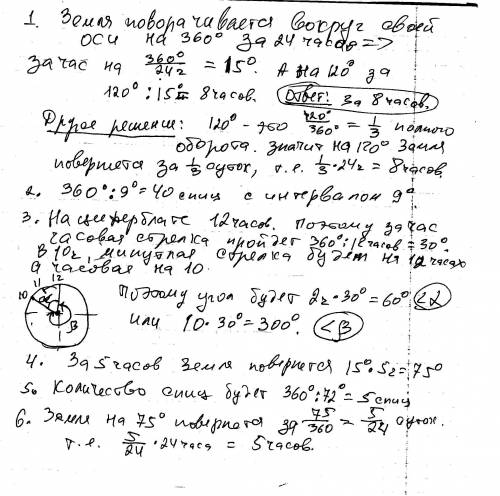 1. Земля поворачивается вокруг своей
оси на 360° за 24 часов =>
за час на 360°/24ч = 15°. А на 120° за
120° : 15° = 8 часов. Ответ: за 8 часов.
Другое решение: 120° - 120°/360° = 1/3 полного
оборота. Значит на 120° Земля
повернется за 1/3 суток, т.е. 1/3 · 24ч = 8 часов.
2. 360° : 9° = 40 спиц с интервалом 9°.
3. На циферблате 12 часов. Поэтому за час
часовая стрелка пройдет 360° : 12 часов = 30°.
В 10ч, минутная стрелка будет на 12 часах
а часовая на 10.
10 11 12
α
β
Поэтому угол будет 2ч · 30° = 60° <α
или 10 · 30° = 300°. <β
4. За 5 часов Земля повернется 15° · 5ч = 75°
5. Количество спиц будет 360° : 72° = 5 спиц
6. Земля на 75° повернется за 75/360 = 5/24 суток.
т.е. 5/24 · 24 часа = 5 часов.